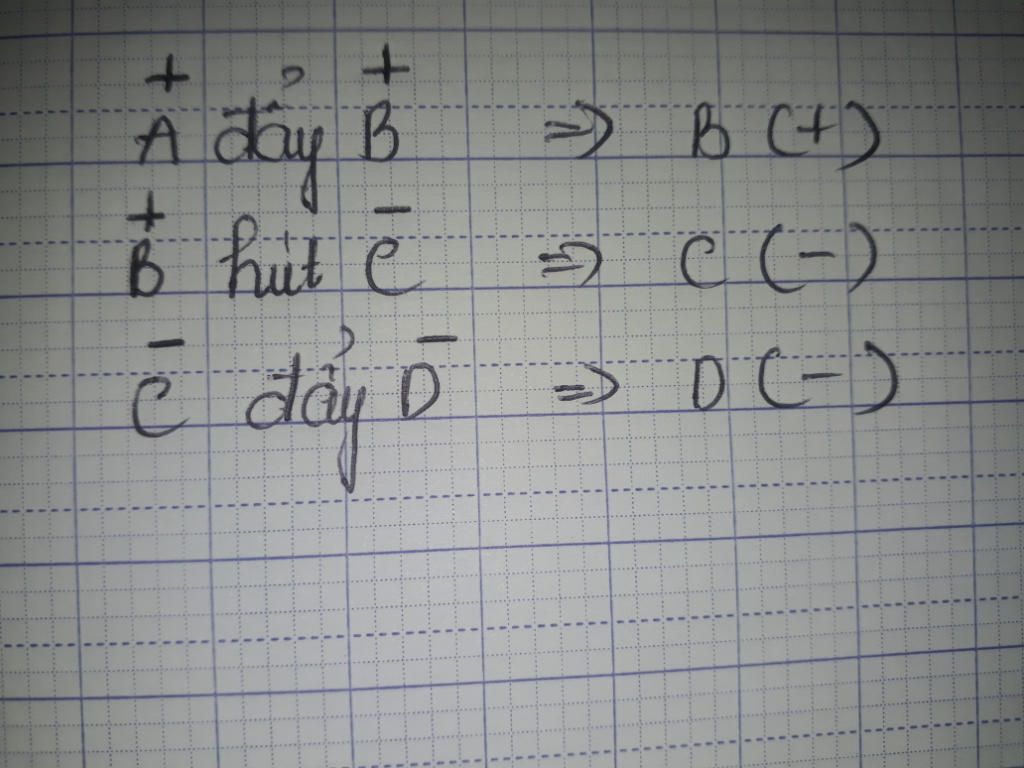 + +
A đẩy B => B (+)
+ −
B hút C => C (−)
− −
C đẩy D => D (−)